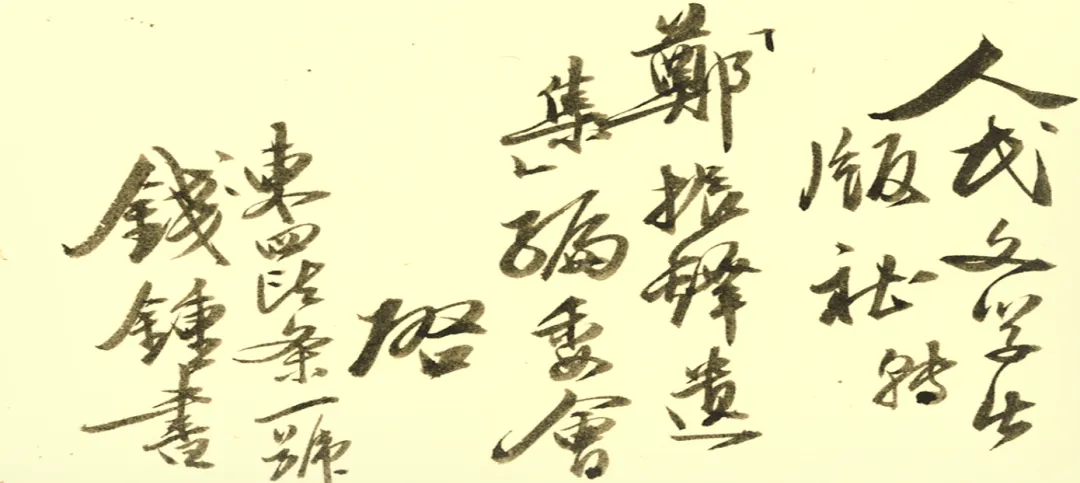 人民文学出
版社转
「鄭振鐸遺
集」編委會
啓
東四头条一號
錢鍾書